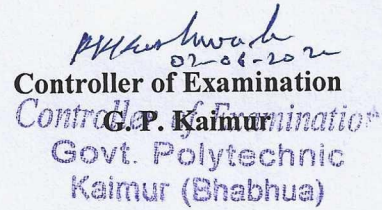 02-06-202
Controller of Examination
Controller of Examination
G. P. Kaimur
Govt. Polytechnic
Kaimur (Bhabhua)